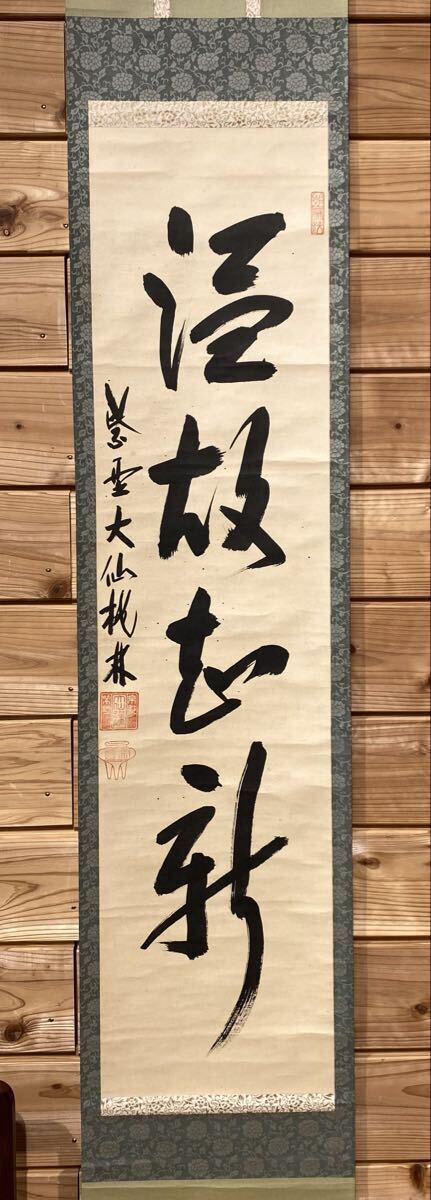 温故知新
紫雲大仙桃林